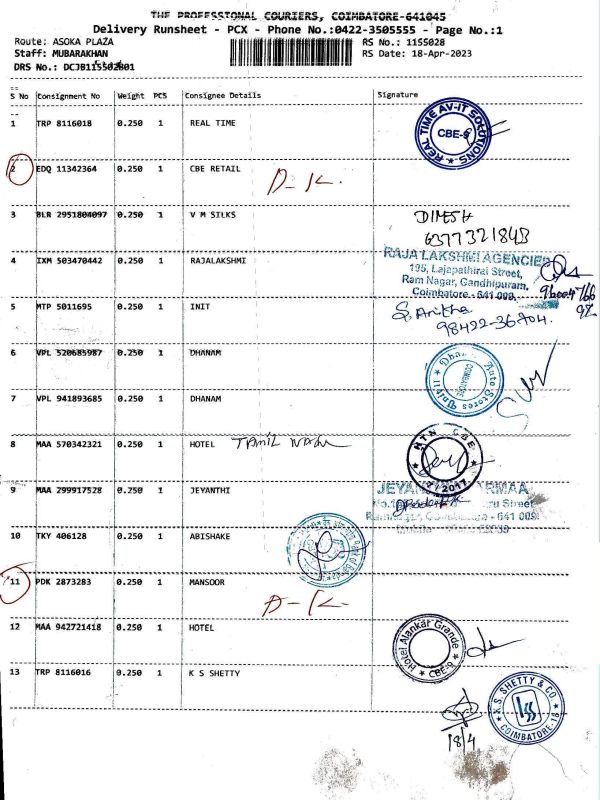 THE PROFESSIONAL COURIERS, COIMBATORE-641045
Delivery Runsheet - PCX - Phone No.:0422-3505555 - Page No.:1
Route: ASOKA PLAZA RS No.: 1155028
Staff: MUBARAKHAN RS Date: 18-Apr-2023
DRS No.: DCJB115502801
S No Consignment No Weight PCS Consignee Details Signature
1 TRP 8116018 0.250 1 REAL TIME
REAL TIME AV-IT SOLUTIONS
CBE-9
2 EDQ 11342364 0.250 1 CBE RETAIL
D-K.
3 BLR 2951804097 0.250 1 V M SILKS
DINESH
6377321843
4 IXM 503470442 0.250 1 RAJALAKSHMI
RAJA LAKSHMI AGENCIES
195, Lajapathirai Street,
Ram Nagar, Gandhipuram,
Coimbatore - 641 009.
5 MTP 5011695 0.250 1 INIT
S. Anitha
98422-36704.
6 VPL 520685987 0.250 1 DHANAM
Auto Stores
COIMBATORE
7 VPL 941893685 0.250 1 DHANAM
8 MAA 570342321 0.250 1 HOTEL TAMIL NADU
HTN CBE
2017
9 MAA 299917528 0.250 1 JEYANTHI
Street
641 009
10 TKY 406128 0.250 1 ABISHAKE
11 PDK 2873283 0.250 1 MANSOOR
D-K-
12 MAA 942721418 0.250 1 HOTEL
Hotel Alankar Grande
CBE-9
13 TRP 8116016 0.250 1 K S SHETTY
K.S. SHETTY & CO
COIMBATORE-18
18/4